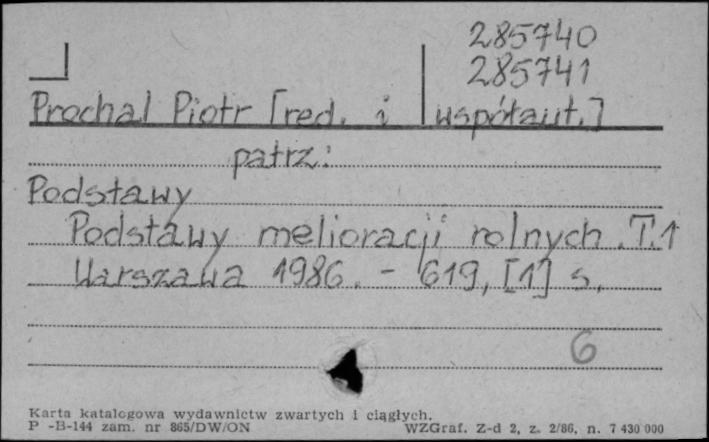 285740
285741
Prochal Piotr [red. i współaut.]
patrz:
Podstawy
Podstawy melioracji rolnych. T.1
Warszawa 1986. - 619, [1] s.
6
Karta katalogowa wydawnictw zwartych i ciągłych.
P -B-144 zam. nr 865/DW/ON WZGraf. Z-d 2, z. 2/86, n. 7 430 000